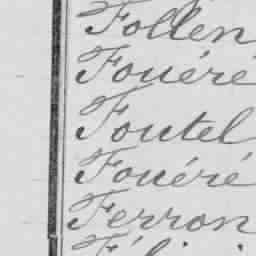 Follen
Fouéré
Foutel
Fouéré
Ferron